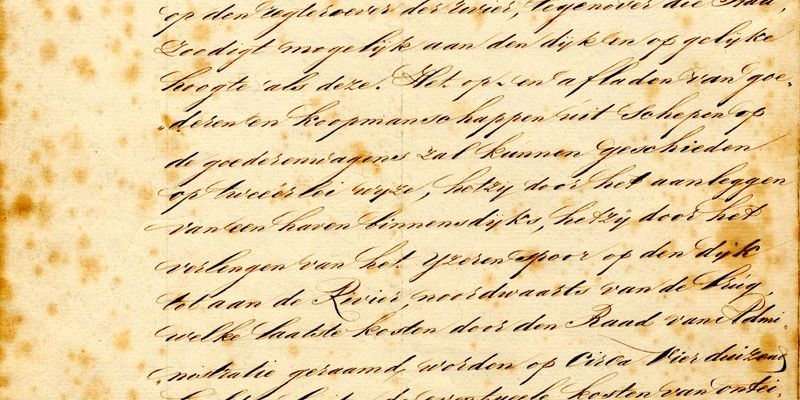 op den regteroever der rivier, tegenover die Stad,
zoodigt mogelijk aan den dijk en op gelijke
hoogte als deze. Het op- en afladen van goe-
„deren en koopmanschappen uit schepen op
de goederenwagens zal kunnen geschieden
op tweeërlei wyze, hetzy door het aanleggen
van een haven binnensdijks, hetzij door het
verlengen van het yzeren spoor op den dijk
tot aan de Rivier, noordwaarts van de brug,
welke laatste kosten door den Raad van Admi-
„nistratie geraamd worden op circa Vier duizend
de eventueele kosten van ontei-